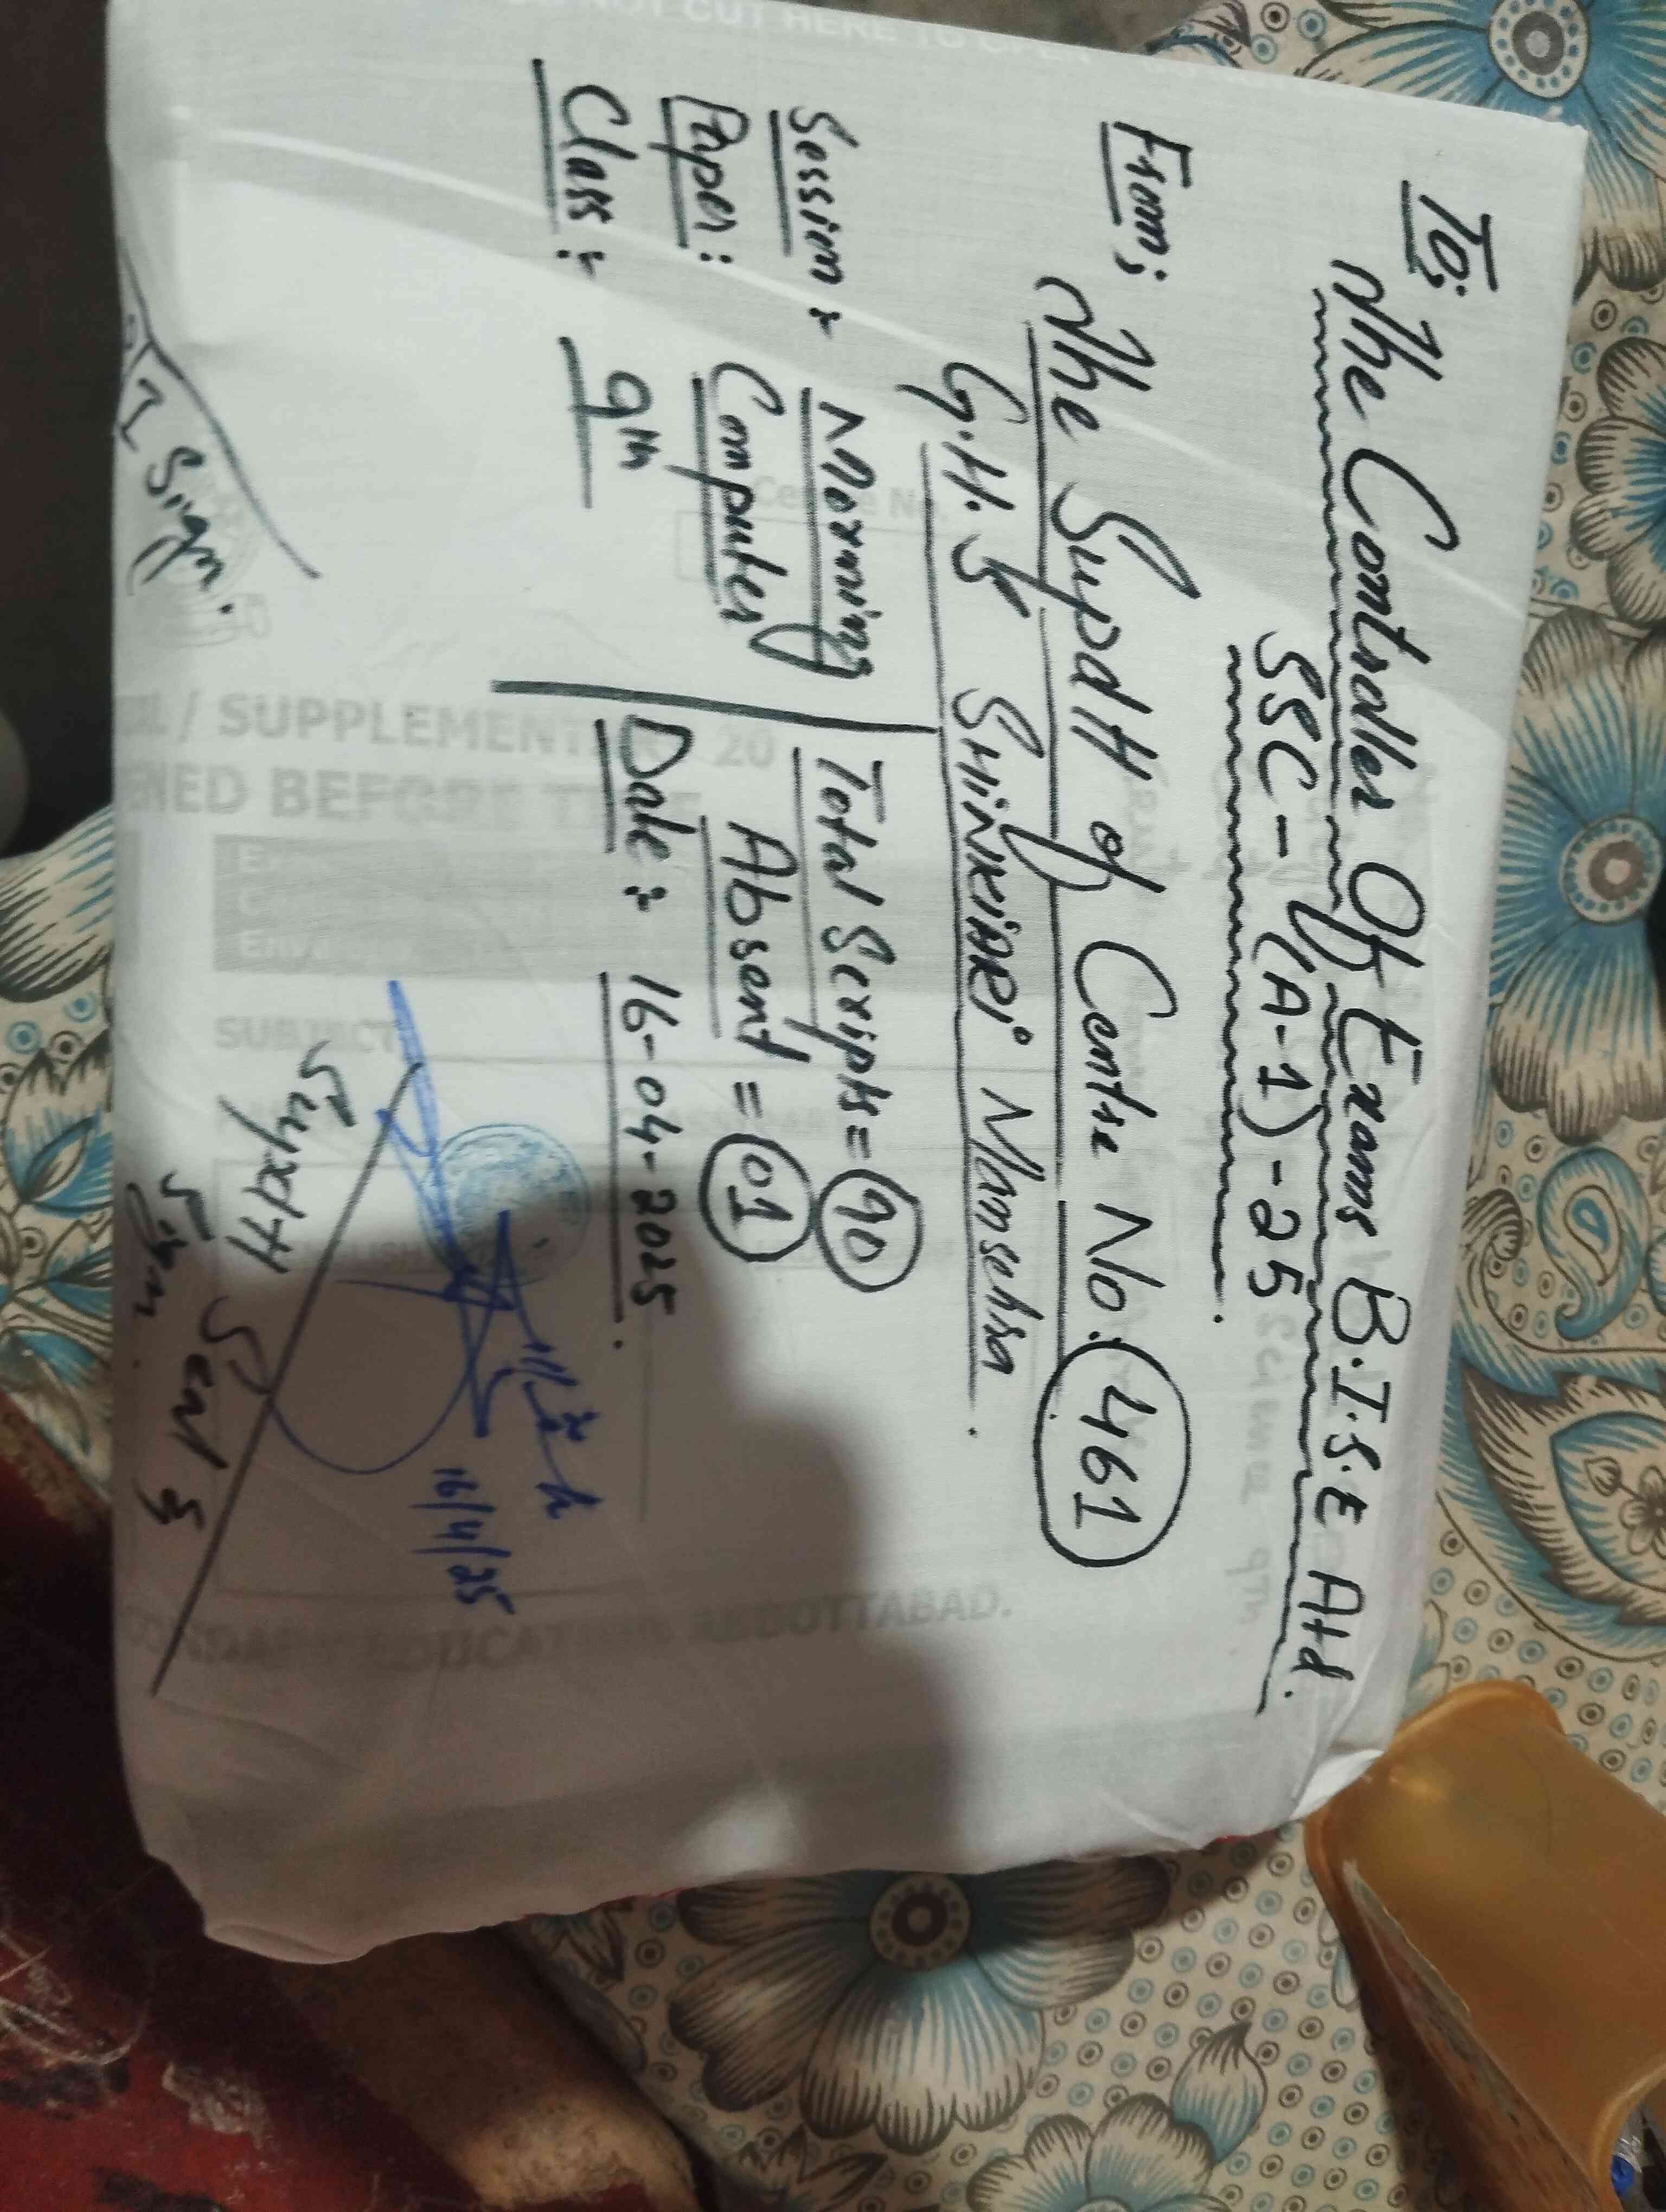 To;
The Controller Of Exams B.I.S.E Atd.
SSC-(A-1)-25
From; The Supdtt of Centre No. 461
G.H.S SHINKIARI Mansehra
Session :- Morning
Total Scripts = 90
Paper : Computer
Absent = 01
Class :- 9th
Date :- 16-04-2025
16/4/25
Supdtt Seal &
Sign.
Sign.
DO NOT CUT HERE TO OPEN
Centre No.
/ SUPPLEMENTARY 20
BEFORE
SUBJECT
EDUCATION ABBOTTABAD.